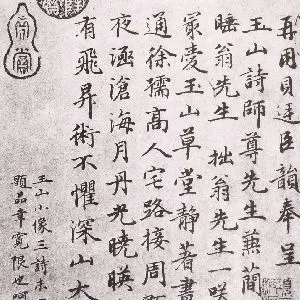 再用貝廷臣韻奉呈
玉山詩師尊先生兼簡
睡翁先生 拙翁先生一咲
最愛玉山草堂靜著書
通徐孺高人宅路接周
夜逐滄海月丹光曉暎
有飛昇術不懼深山大
玉山小像三詩未
題品幸寬限也呵